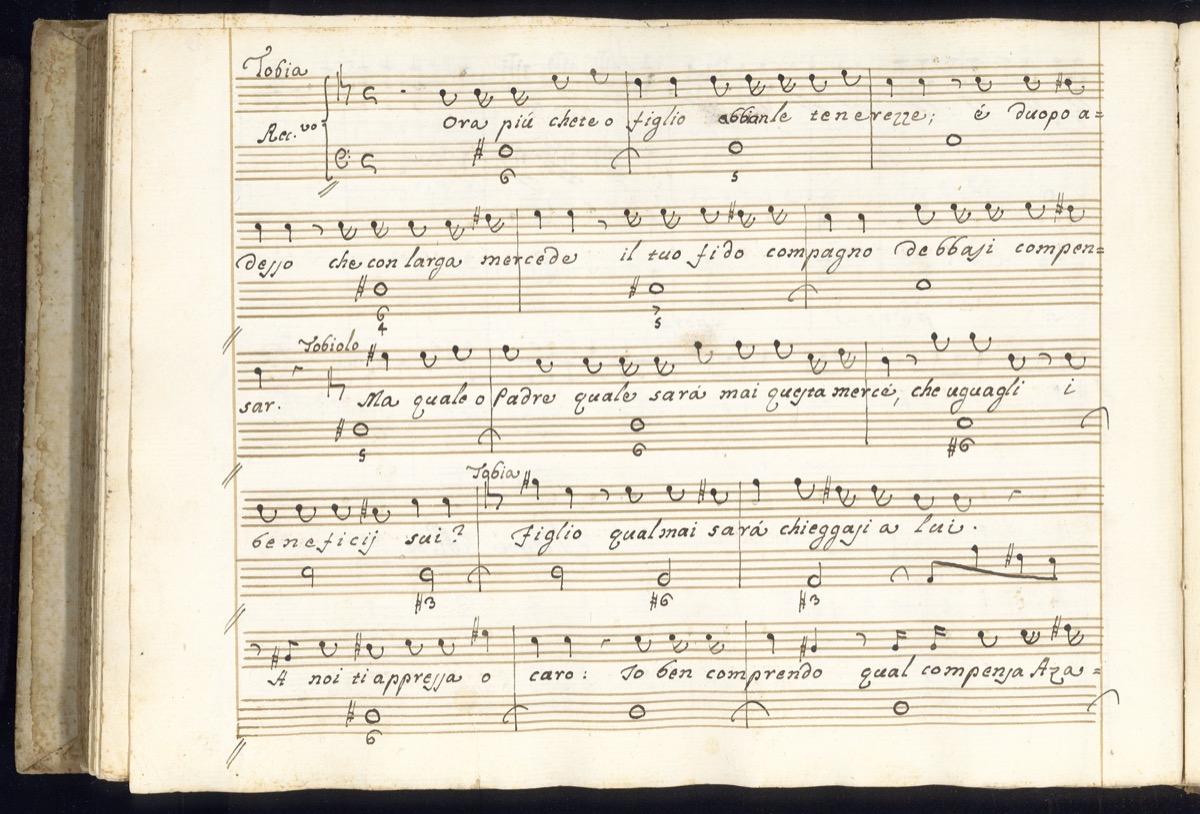 Tobia
Rec.vo
Ora piú chete o figlio abbianle tenerezze; é duopo a=
6 5
desso che con larga mercede il tuo fido compagno debbasi compen=
6 7
4 5
Tobiolo
sar. Ma quale o Padre quale sará mai questa mercé, che uguagli i
5 6 #6
Tobia
beneficij sui? Figlio qualmai sará chieggasi a lui.
#3 #6 #3
A noi ti appressa o caro: Io ben comprendo qual compensa Aza=
6